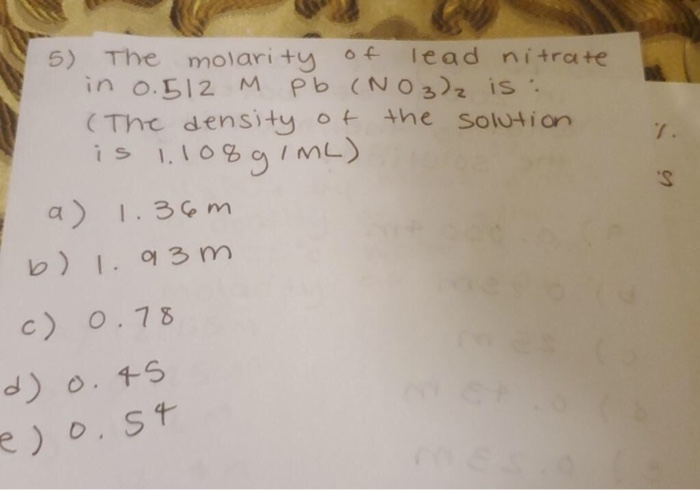 5) The molarity of lead nitrate
in 0.512 M Pb (NO3)2 is :
(The density of the solution
is 1.108 g/mL)
a) 1.36m
b) 1.93m
c) 0.78
d) 0.45
e) 0.54
%.
's